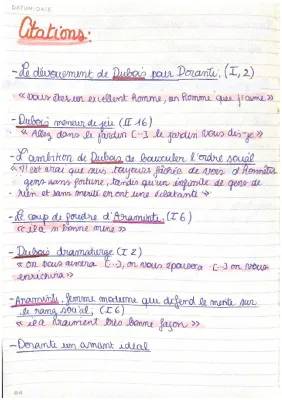 DATUM/DATE
Citations:
- Le dévouement de Dubois pour Dorante. (I, 2)
« vous êtes un excellent homme, un homme que j'aime »
- Dubois meneur de jeu (II 16)
« Allez dans le jardin [...] le jardin vous dis-je »
- L'ambition de Dubois de bousculer l'ordre social
« Il est vrai que suis toujours fâchée de voir d'honnêtes
gens sans fortune, tandis qu'un infinité de gens de
rien et sans mérite en ont une éclatante »
- Le coup de foudre d'Araminte. (I 6)
« il a bonne mine »
- Dubois dramaturge (I 2)
« on vous aimera [...], on vous épousera [...] on vous
enrichira »
- Araminte, femme moderne qui défend le mérite sur
le rang social, (I 6)
« il a vraiment très bonne façon »
- Dorante un amant idéal